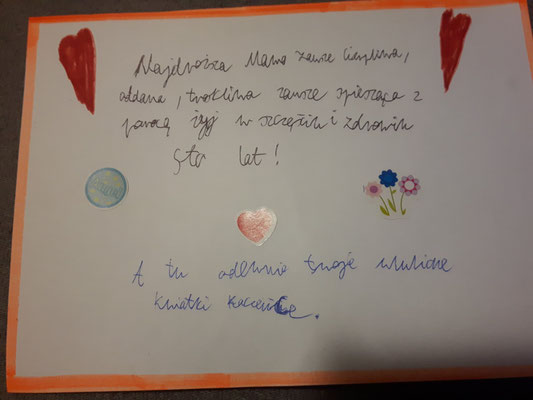 Najdroższa Mamo zawsze cierpliwa,
oddana, troskliwa zawsze spiesząca z
pomocą żyj w szczęściu i zdrowiu
sto lat!
A tu odemnie twoje ulubione
kwiatki